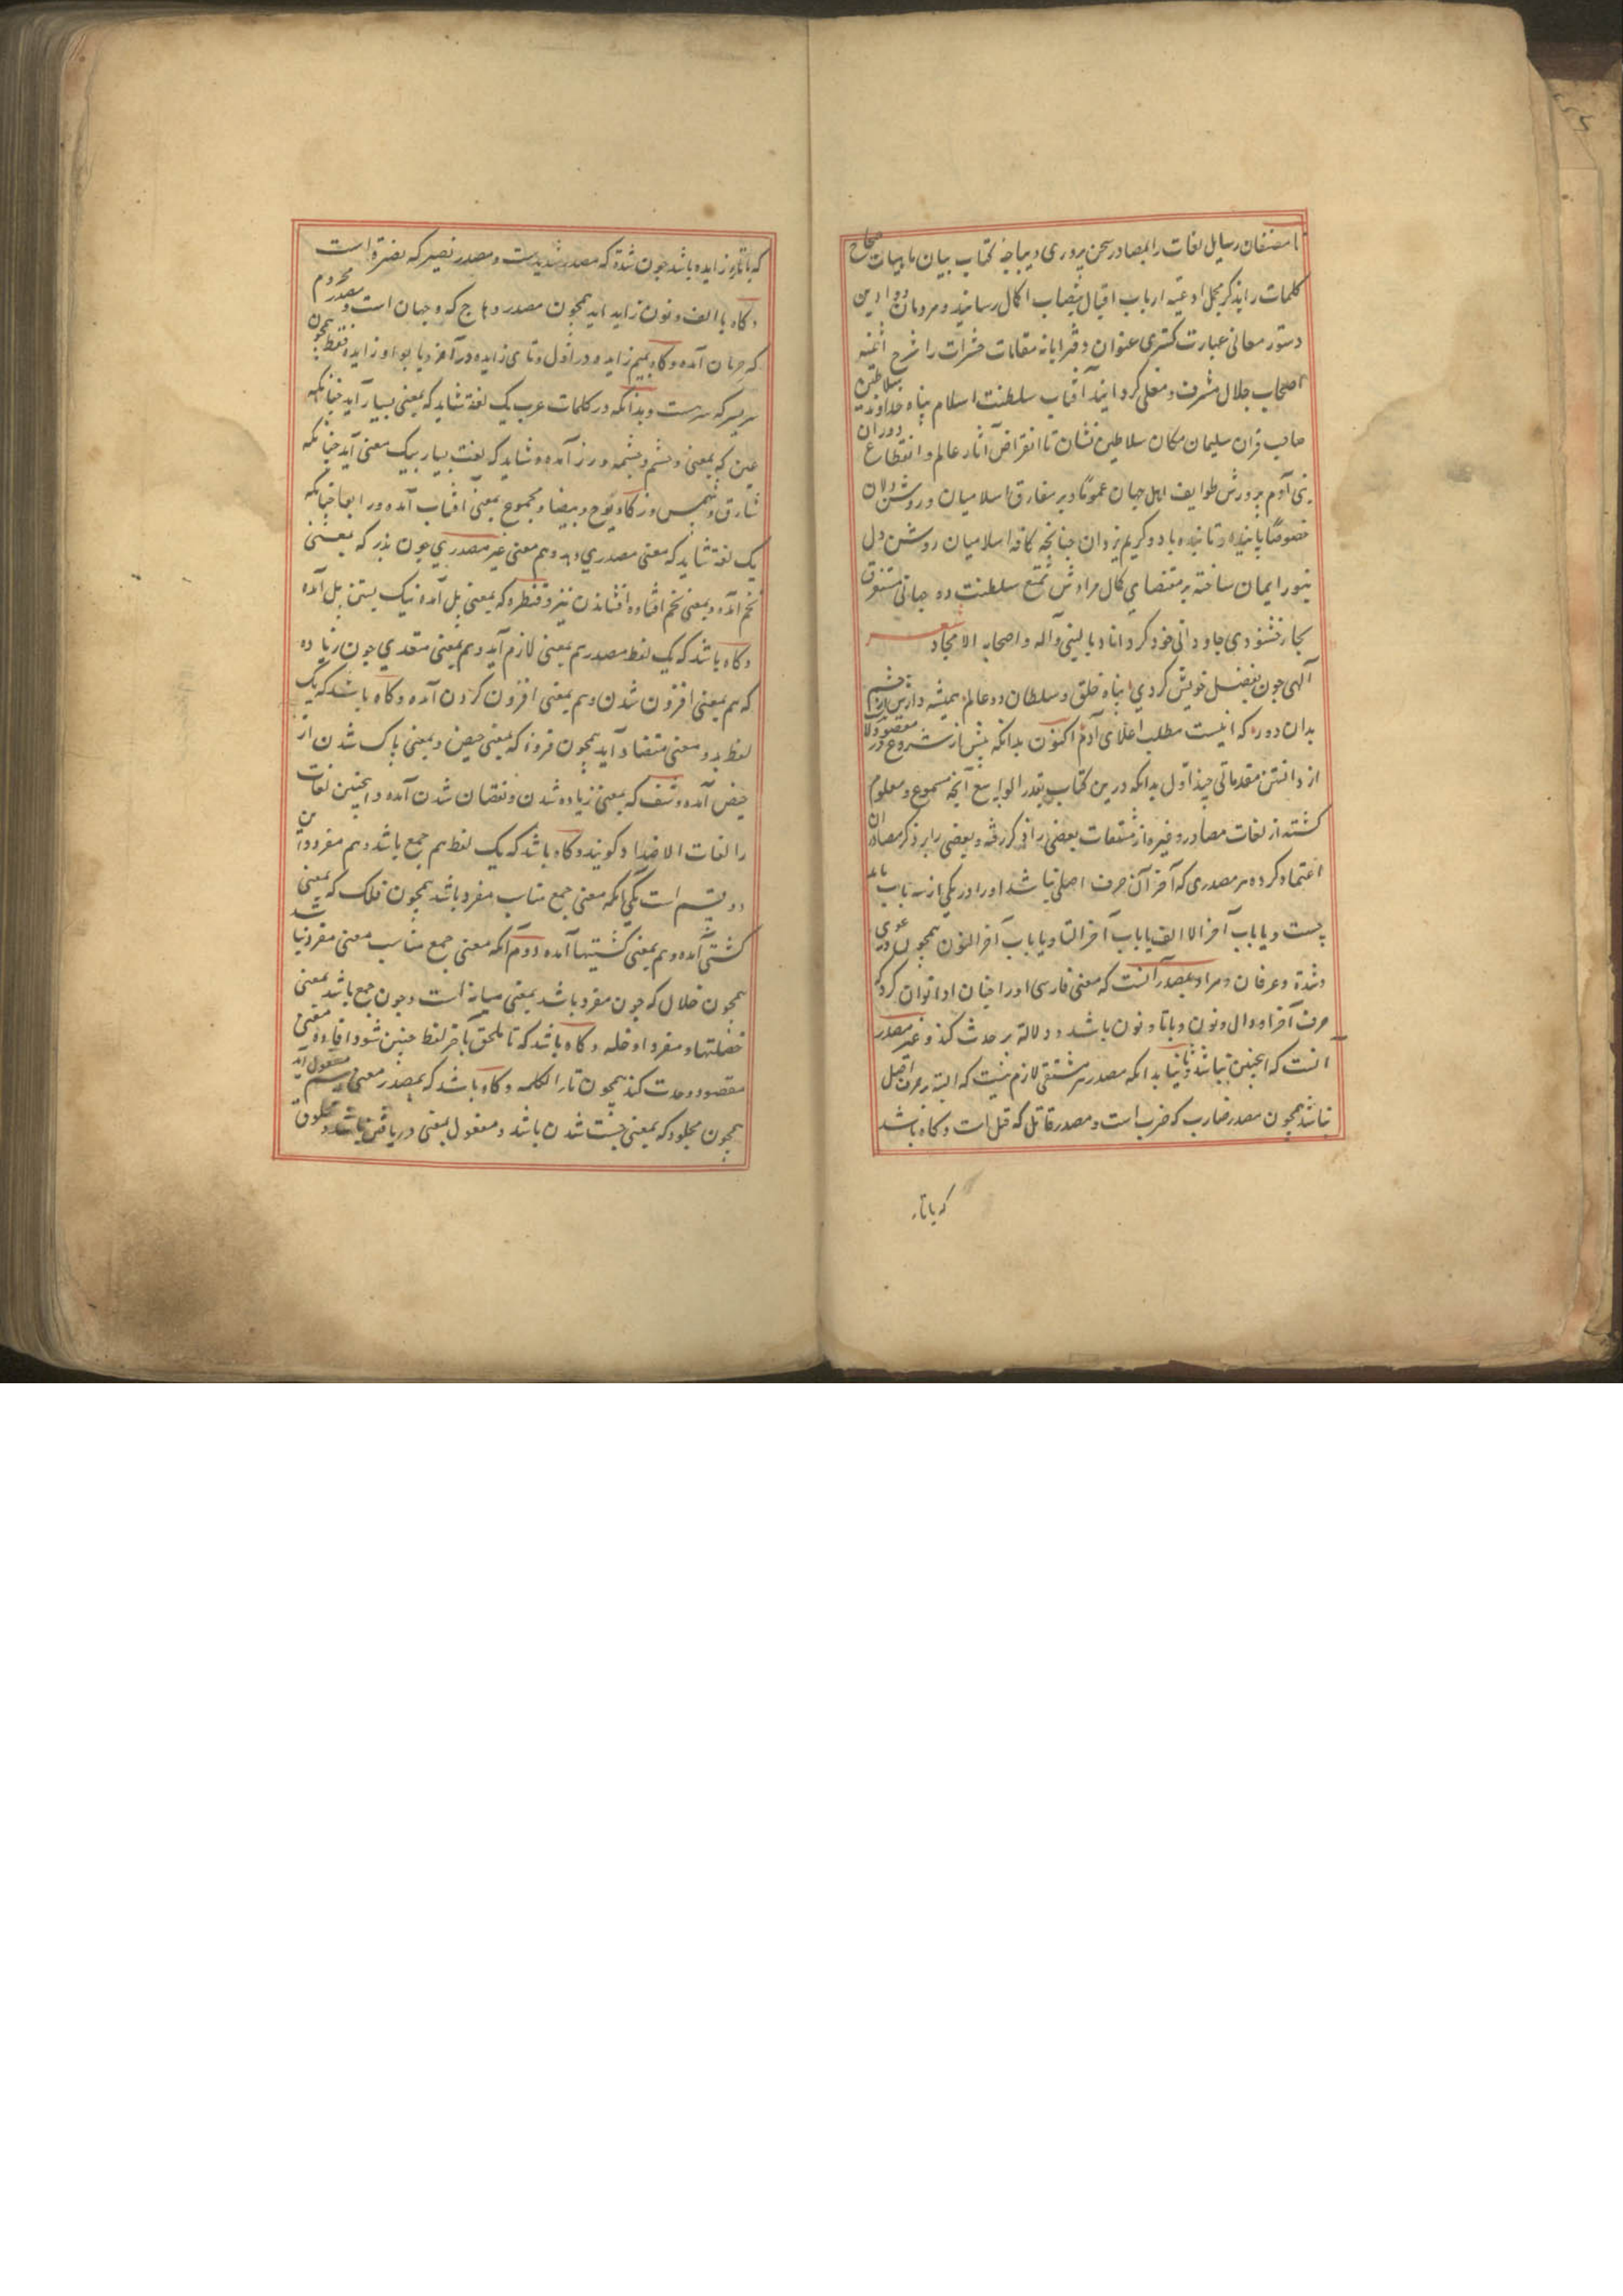 تا مصنفان رسایل لغات را بمصادر سخن پروری دیباجه کتاب بیان با بیات صحاح
کلمات را بذکر مجمل ادعیه ارباب اقبال بنصاب اکمال رسانند و مردمان دواوین
دستور معانی عبارت کستری عنوان دفتر مقامات را شرح
اصحاب جلال مشرف و محلی کردانند آفتاب سلطنت اسلام پناه خداوند سلاطین
صاحب قران سلیمان مکان سلاطین نشان تا انقراض آثار عالم و انقطاع دوران
بنی آدم پرورش طوایف اهل جهان عموما و بر مفارق اسلامیان و روشن دلان
خصوصا پاینده و تابنده باد و کریم یزدان جنانجه کافه اسلامیان روشن دل
بنور ایمان ساخته بر مقتضای کمال مرادش تمتع سلطنت ده جهانی مستغرق
بحار خشنودی جاودانی خود کرداناد بالنبی وآله واصحابه الامجاد شعر
الهی جون بفضل خویش کردی پناه خلق و سلطان دو عالم همیشه دارش از
بدان دور که اینست مطلب اعلای آدم اکنون بدانکه پیش از شروع در مقصود
از دانستن مقدماتی جند اول بدانکه درین کتاب بقدر الوسع آنجه مسموع و معلوم
کشته از لغات مصادر و غیره از مشتقات بعضی را ذکر رفته و بعضی را بر ذکر مصادر ان
اعتماد کرده هر مصدری که آخر آن حرف اصلی نباشد اورا در یکی از سه باب باید
جست و یا باب آخر الالف یا باب آخر التا و یا باب آخر النون همجون دعوی
و شدة و عرفان و مراد بمصدر آنست که معنی فارسی اورا جنان ادا توان کرد که
حرف آخر او دال و نون و یا تا و نون باشد و دلالة بر حدث کند و غیر مصدر
آنست که اینجنین نباشد و ثانیا بدانکه مصدر هر مشتقی لازم نیست که البته بر حرف اصل
باشد همجون مصدر ضارب که ضرب است و مصدر قاتل که قتل است و کاه باشد
که با تاء
که با تاء زایده باشد جون شدة که مصدر شدیدست و مصدر نصیر که نصرة است
و کاه با الف و نون زاید آید همجون مصدر که وجهان است و مصدر محروم
که حرمان آمده و کاه بمیم زایده در اول و تای زایده در آخر و یا بواو زایده فقط همجون
سریر که سرست و بدانکه در کلمات عرب یک لغة شاید که بمعنی بسیار آید جنانکه
عین که بمعنی و جشم و جشمه و زر آمده و شاید که لغت بسیار بیک معنی آید جنانکه
شارق و شمس و زکا و یوح و بیضا و مجموع بمعنی آفتاب آمده و رابعا جنانکه
یک لغة شاید که معنی مصدری دهد و هم معنی غیر مصدری جون بذر که بمعنی
تخم آمده و بمعنی تخم افشاندن نیز و قنطره که بمعنی پل آمده نیک بستن پل آمده
و کاه باشد که یک لفظ مصدر هم بمعنی لازم آید و هم بمعنی متعدی جون زیاده
که هم بمعنی افزون شدن و هم بمعنی افزون کردن آمده و کاه باشد که یک
لفظ بدو معنی متضاد آید همجون قروء که بمعنی حیض و بمعنی پاک شدن از
حیض آمده و شف که بمعنی زیاده شدن و نقصان شدن آمده و اینجنین لغات
را لغات الاضداد کویند و کاه باشد که یک لفظ هم جمع باشد و هم مفرد و این
دو قسم است یکی آنکه معنی جمع مناسب مفرد باشد همجون فلک که بمعنی
کشتی آمده و هم بمعنی کشتیها آمده دوم آنکه معنی جمع مناسب معنی مفرد نباشد
همجون خلال که جون مفرد باشد بمعنی میانه است و جون جمع باشد بمعنی
خصلتها و مفرد او خله و کاه باشد که تا ملحق بآخر لفظ جنین شود و افاده معنی
مقصود وحدت کند همجون تاء الکلمه و کاه باشد که بمصدر معنی اسم مفعول آید
همجون مجلود که بمعنی جست شدن باشد و معقول بمعنی دریافتن باشد و محلوق